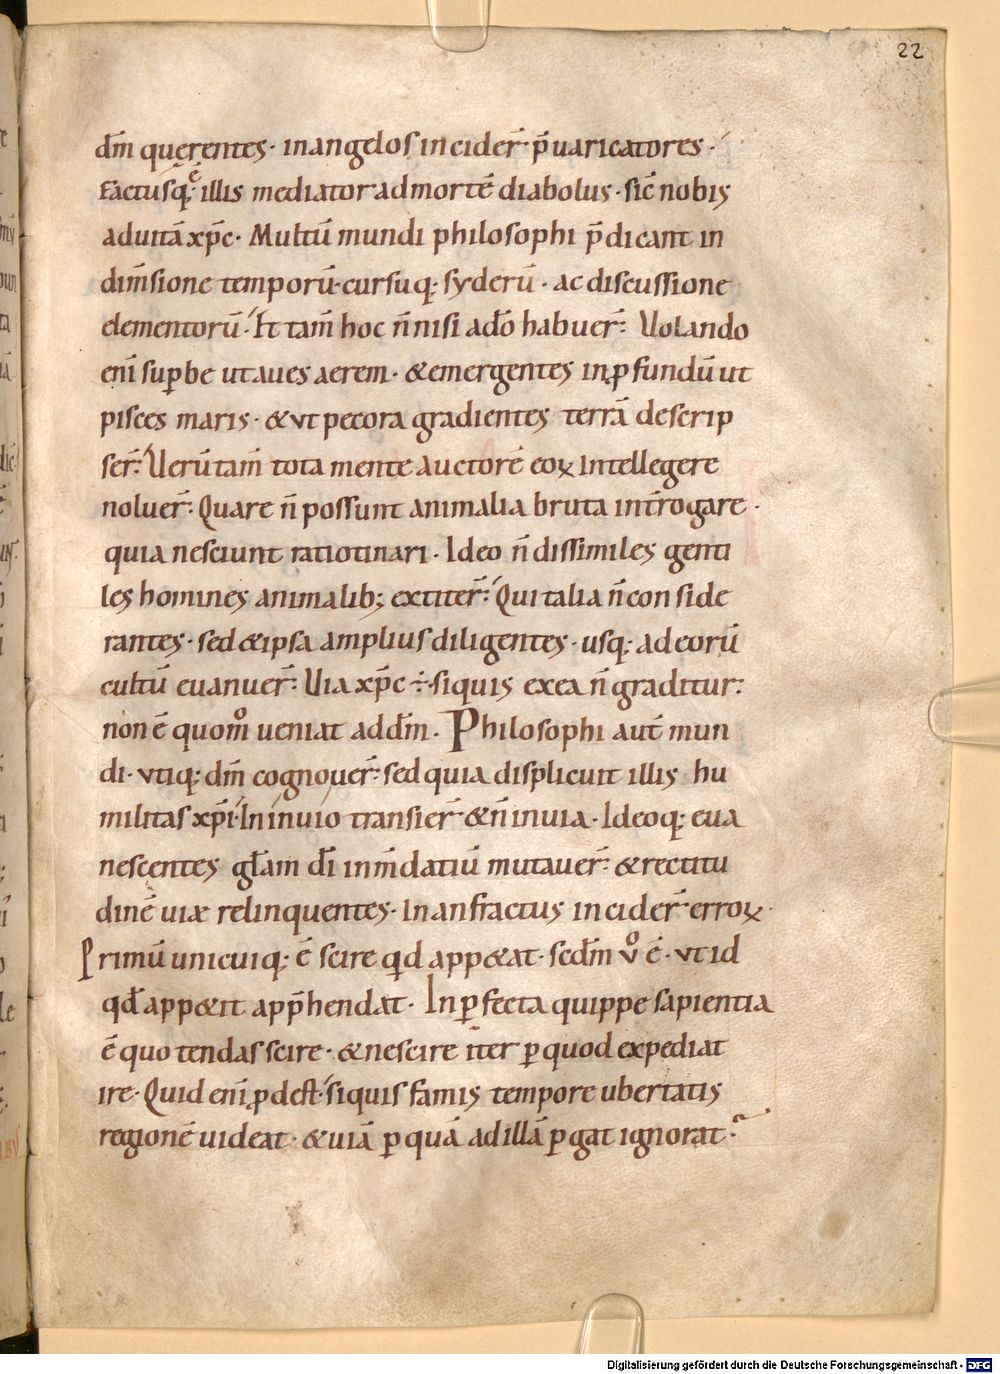 22
dm̄ querentes · in angelos incider̄ · p̄uaricatores ·
Factusq; ē illis mediator ad mortē diabolus · sic̄ nobis
ad uitā xp̄c · Multū mundi philosophi p̄dicant in
dim̄sione temporū · cursuq; syderū · ac discussione
elementorū · Et tam̄ hoc n̄ nisi a dō habuer̄ · Uolando
eni̅ supƀe ut aues aerem · & emergentes in ꝓfundū ut
pisces maris · & ut pecora gradientes terrā descrip
ser̄ · Uerūtam̄ tota mente auctorē eoꝝ intellegere
noluer̄ · Quare n̄ possunt animalia bruta int̄rogare ·
quia nesciunt ratiotinari · Ideo n̄ dissimiles genti
les homines animalib; extiter̄ · Qui talia n̄ conside
rantes · sed & ipsa amplius diligentes · usq; ad eorū
cultū euanuer̄ · Uia xp̄c ÷ · si quis ex ea n̄ graditur ·
non ē quom̊ ueniat ad dm̄ · Philosophi aut̄ mun
di · utiq; dm̄ cognouer̄ · sed quia displicuit illis hu
militas xp̄i · In inuio transier̄ & n̄ in uia · Ideoq; eua
nescentes gl̄am dī in m̄datiū mutauer̄ · & rectitu
dinē uiæ relinquentes · In anfractus incider̄ erroꝝ ·
Primū unicuiq; ē scire qd̄ app&at · sedm̄ v̊ ē · ut id
qd̄ app&it app̄hendat · Inꝑfecta quippe sapientia
ē quo tendas scire · & nescire iter ꝑ quod expediat
ire · Quid eni̅ ꝓdest · si quis famis tempore ubertatis
regionē uideat · & uiā ꝑ quā ad illā ꝑgat ignorat ·
Digitalisierung gefördert durch die Deutsche Forschungsgemeinschaft - DFG